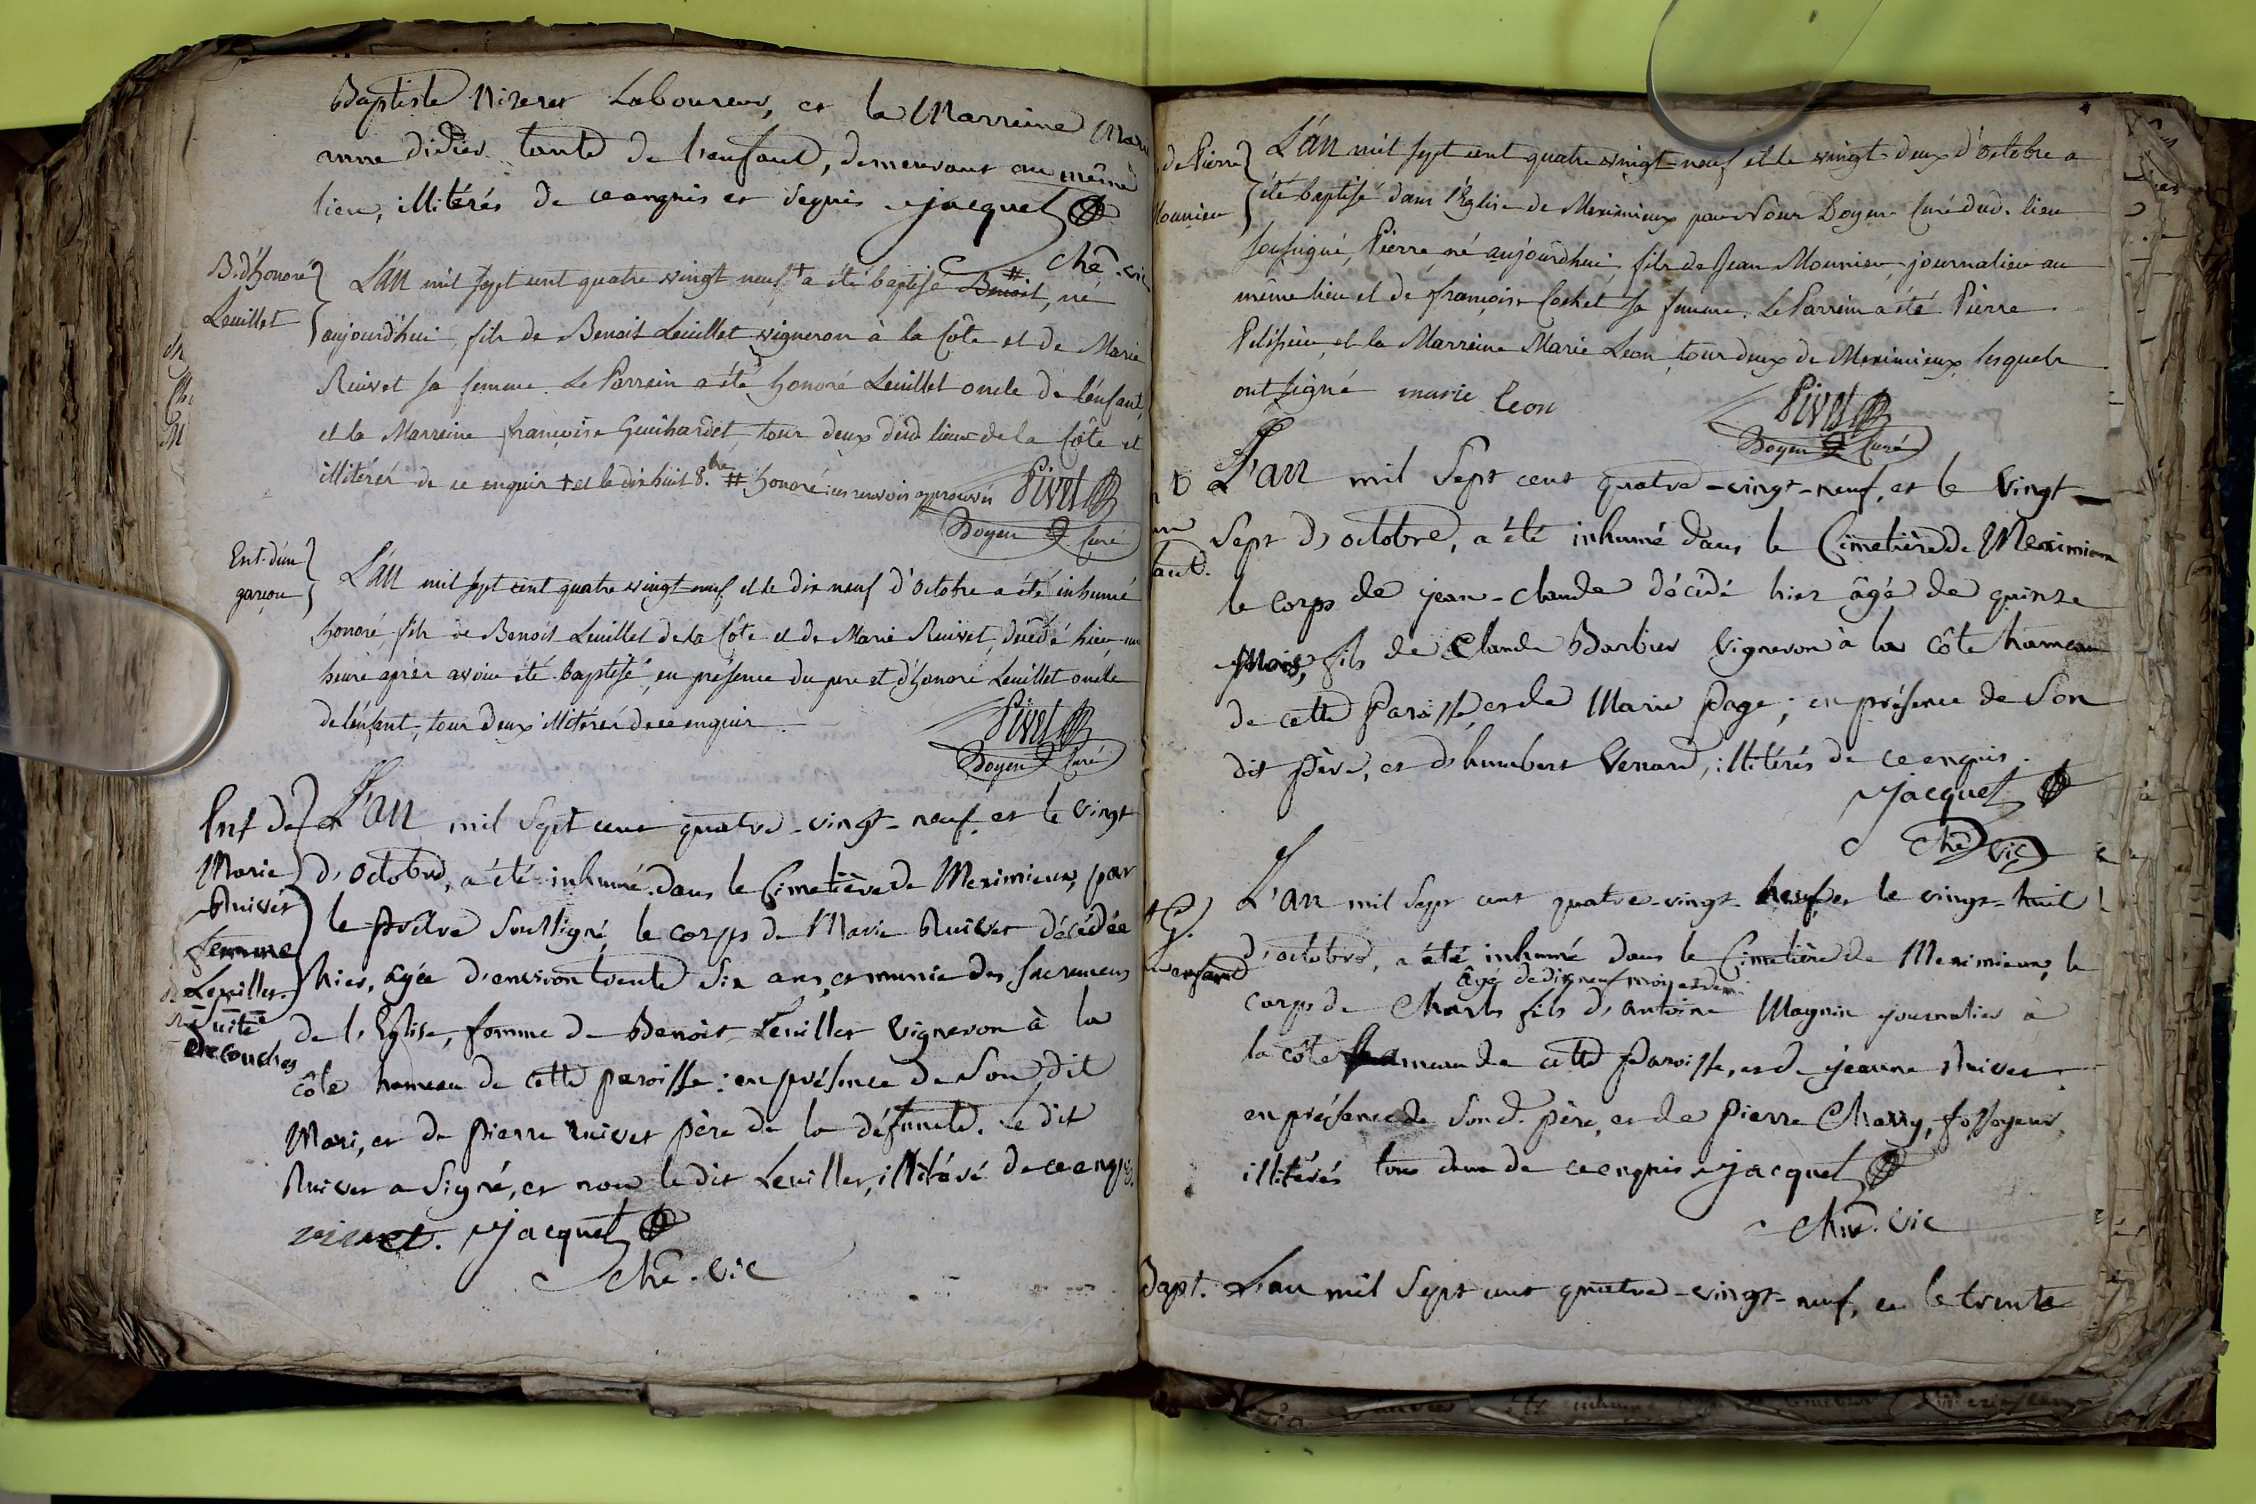 Baptiste Nizeret Laboureur, et la Marreine Marie
anne didier tante de l'enfant, demeurant au même
lieu, illitérés de ce enquis et requis Jacquet
che. vic
B. d'honoré
Leuillet
L'an mil sept cent quatre vingt neuf + a été baptisé Benoit #, né
aujourd'hui, fils de Benoit Leuillet vigneron à la Côte et de Marie
Ruivet sa femme. Le Parrein a été honoré Leuillet oncle de l'enfant,
et la Marreine françoise Guichardet tous deux dud. lieu de la Côte et
illitérés de ce enquis + et le dix huit 8.bre # honoré : ces renvois approuvés Pivet
Doyen & Curé
Ent. d'un
garçon
L'an mil sept cent quatre vingt neuf et le dix neuf d'octobre a été inhumé
honoré, fils de Benoit Leuillet de la Côte et de Marie Ruivet, décédé hier, une
heure après avoir été baptisé, en présence du pere et d'honoré Leuillet oncle
de l'enfant, tous deux illitérés de ce enquis.
Pivet
Doyen & Curé
Ent de
Marie
Ruivet
femme
de Leuillet.
suite
de couches
L'an mil sept cent quatre-vingt-neuf, et le vingt
d'octobre, a été inhumé dans le Cimetière de Meximieux, par
le prêtre soussigné, le corps de Marie Ruivet décédée
hier, âgée d'environ trente six ans, et munie des sacremens
de l'Eglise, femme de Benoit Leuillet vigneron à la
côte hameau de cette paroisse : en présence de Son dit
Mari, et de pierre ruivet père de la défunte. le dit
Ruivet a signé, et non le dit Leuillet, illitéré de ce enquis.
ruivet. Jacquet
che. vic
de Pierre
Mounier
L'an mil sept cent quatre vingt-neuf et le vingt-deux d'octobre a
été baptisé dans l'Eglise de Meximieux par nous Doyen Curé dud. lieu
soussigné, Pierre, né aujourd'hui, fils de Jean Mounier, journalier au
même lieu et de françoise Cochet sa femme. Le Parrein a été Pierre
Pelissier, et la Marreine Marie Leon, tous deux de Meximieux, lesquels
ont signé marie leon
Pivet
Doyen & Curé
L'an mil sept cent quatre-vingt-neuf, et le vingt-
sept d'octobre, a été inhumé dans le Cimetière de Meximieux
le corps de jean-claude décédé hier âgé de quinze
Mois, fils de Claude Barbier vigneron à la côte hameau
de cette Paroisse, et de Marie Page ; en présence de Son
dit père, et d'humbert Venard, illitérés de ce enquis.
Jacquet
che vic
enfant
L'an mil sept cent quatre-vingt-neuf, et le vingt-huit
d'octobre, a été inhumé dans le Cimetière de Meximieux, le
âgé de dix neuf mois et demi
corps de Charles fils d'antoine Magnin journalier à
la côte hameau de cette paroisse, et de jeanne Ruivet.
en présence de son d. père, et de pierre Charry, fossoyeur,
illitérés tous deux de ce enquis Jacquet
che. vic
Bapt.
L'an mil sept cent quatre-vingt-neuf, et le trente